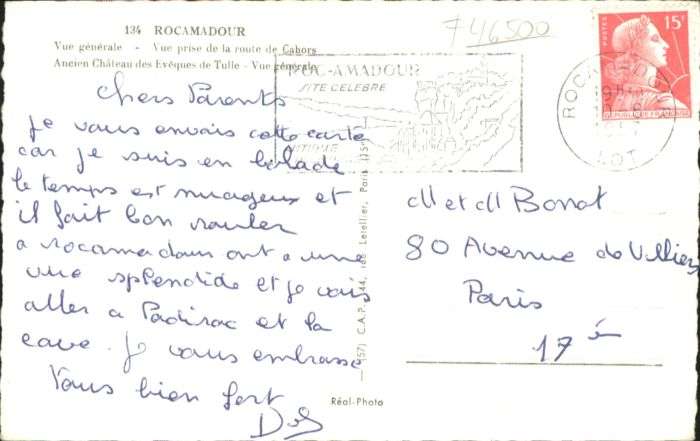 134 ROCAMADOUR
Vue générale - Vue prise de la route de Cahors
Ancien Château des Evêques de Tulle - Vue générale
746500
ROC-AMADOUR
SITE CÉLÈBRE
POSTES 15F
REPUBLIQUE FRANÇAISE
LOT
chers Parents
Je vous envois cette carte
car je suis en balade
le temps est nuageux et
il fait bon rouler
a rocamadour ont a une
vue splendide et je vais
aller a Padirac et la
cave. Je vous embrasse
Vous bien fort
M et M Bonat
80 Avenue de Villiers
Paris
17 è
Réal-Photo